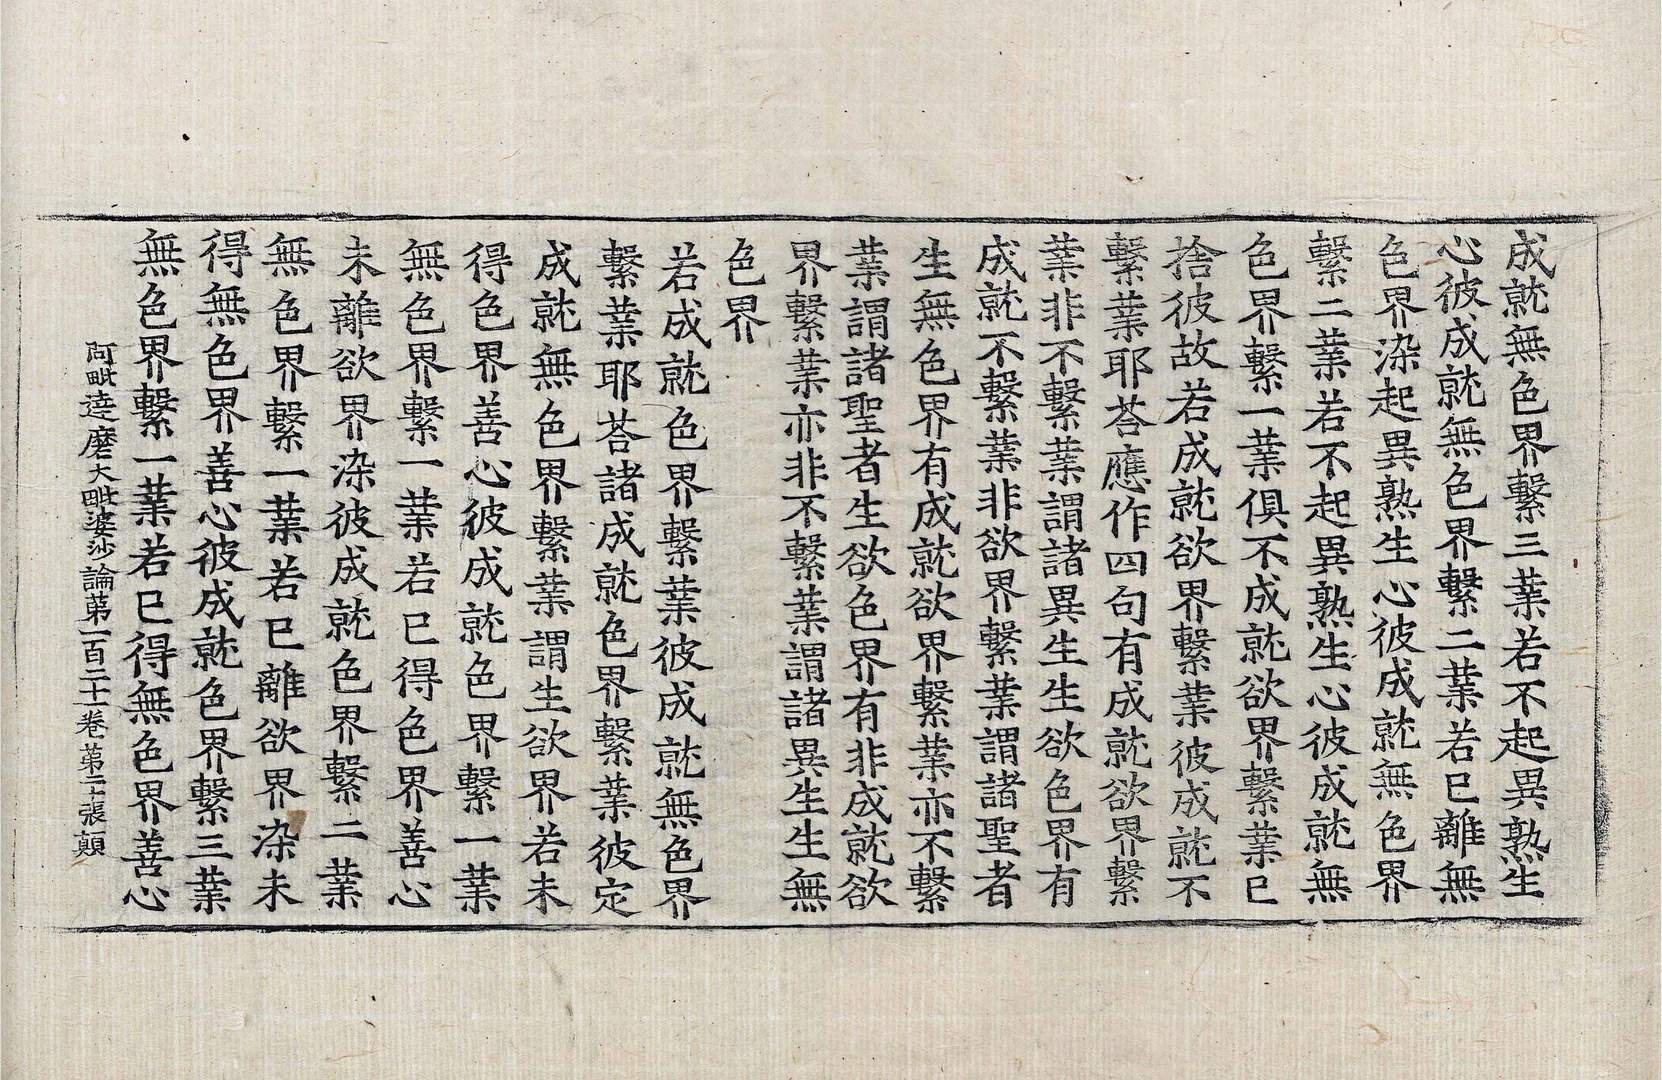 成就無色界繫三業若不起異熟生
心彼成就無色界繫二業若已離無
色界染起異熟生心彼成就無色界
繫二業若不起異熟生心彼成就無
色界繫一業俱不成就欲界繫業已
捨彼故若成就欲界繫業彼成就不
繫業耶荅應作四句有成就欲界繫
業非不繫業謂諸異生生欲色界有
成就不繫業非欲界繫業謂諸聖者
生無色界有成就欲界繫業亦不繫
業謂諸聖者生欲色界有非成就欲
界繫業亦非不繫業謂諸異生生無
色界
若成就色界繫業彼成就無色界
繫業耶荅諸成就色界繫業彼定
成就無色界繫業謂生欲界若未
得色界善心彼成就色界繫一業
無色界繫一業若已得色界善心
未離欲界染彼成就色界繫二業
無色界繫一業若已離欲界染未
得無色界善心彼成就色界繫三業
無色界繫一業若已得無色界善心
阿毗達磨大毗婆沙論第一百二十二卷 第二十張 顛